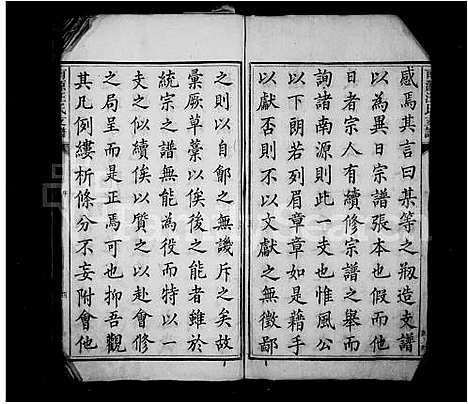 感焉其言曰某等之剏造支譜
也以為異日宗譜張本也假而他
日者宗人有續修宗譜之舉而
詢諸南源則此一支也惟風公
以下朗若列眉章章如是藉手
以獻否則不以文獻之無徵鄙
之則以自鄶之無譏斥之矣故
彙厥草藁以俟後之能者雖於
統宗之譜無能為役而特以一
支之似續俟以質之以赴會修
之局呈而是正焉可也抑吾觀
其凡例縷析條分不妄附會他